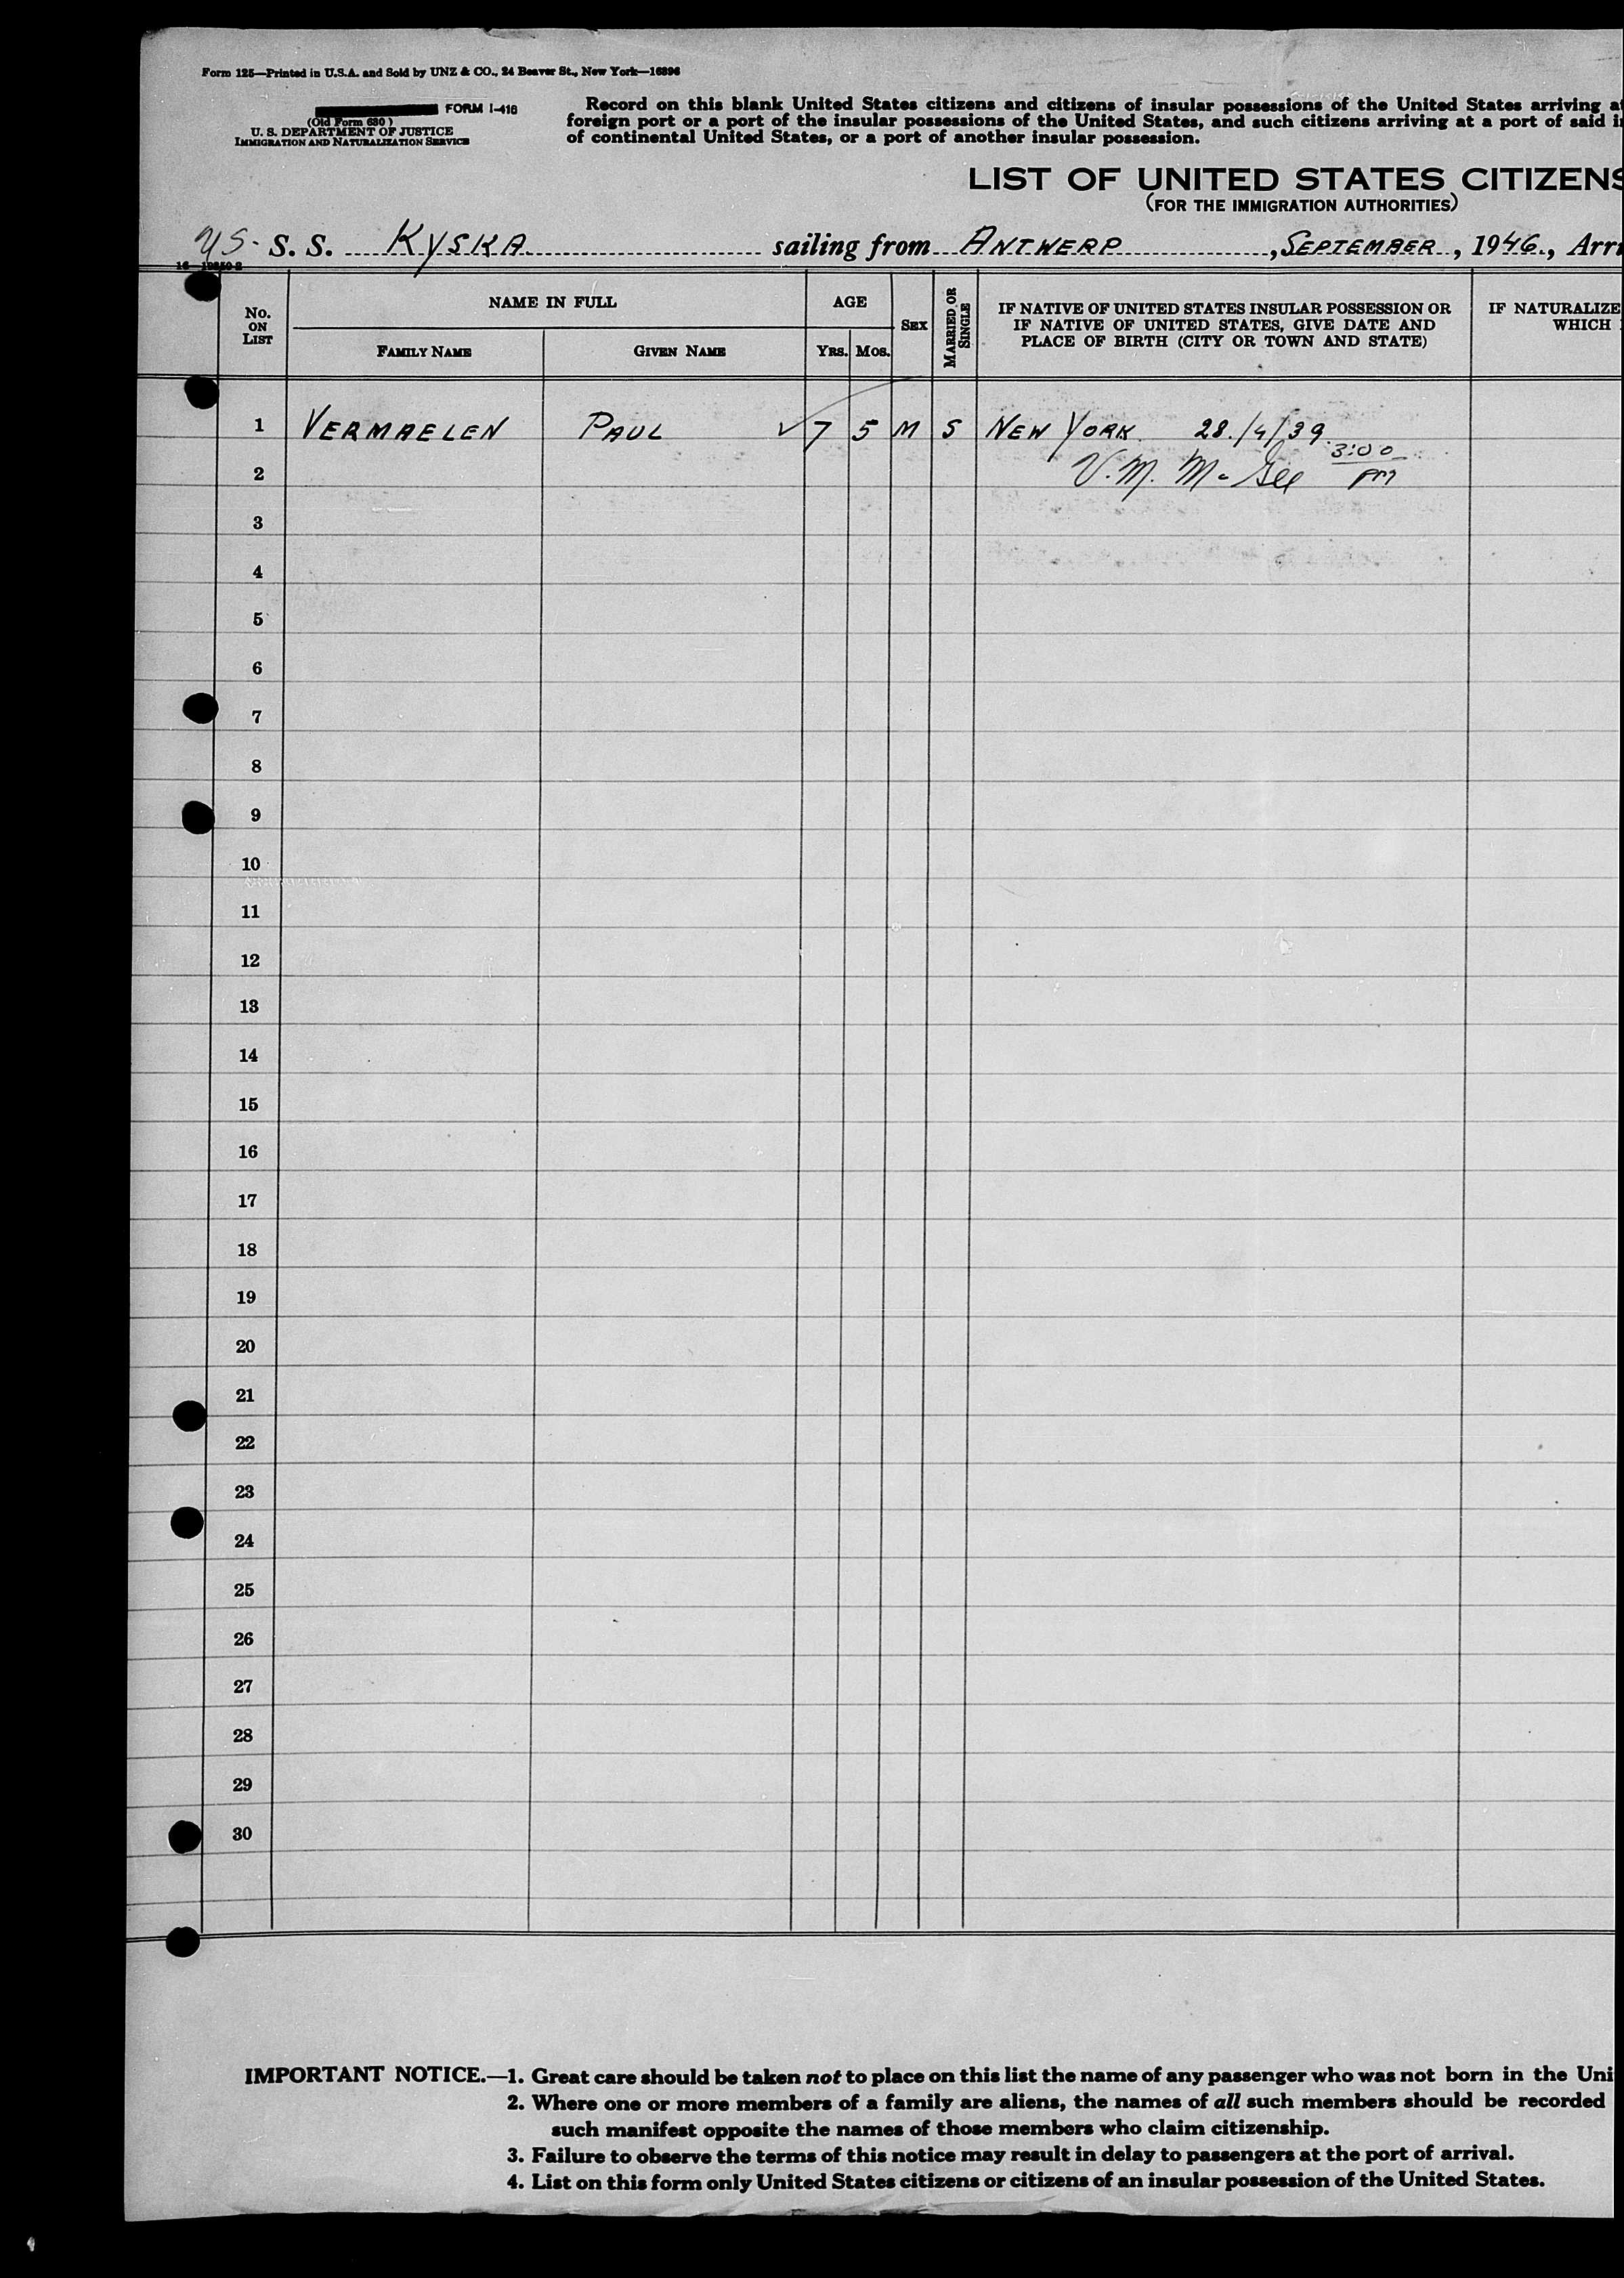 Form 125—Printed in U.S.A. and Sold by UNZ & CO., 24 Beaver St., New York—16896
FORM I-416
(Old Form 680)
U. S. DEPARTMENT OF JUSTICE
IMMIGRATION AND NATURALIZATION SERVICE
Record on this blank United States citizens and citizens of insular possessions of the United States arriving at
foreign port or a port of the insular possessions of the United States, and such citizens arriving at a port of said
of continental United States, or a port of another insular possession.
LIST OF UNITED STATES CITIZENS
(FOR THE IMMIGRATION AUTHORITIES)
US. S. S. KYSKA sailing from ANTWERP, SEPTEMBER, 1946, Arri
No. ON LIST
NAME IN FULL
FAMILY NAME
GIVEN NAME
AGE
YRS. MOS.
SEX
MARRIED OR SINGLE
IF NATIVE OF UNITED STATES INSULAR POSSESSION OR
IF NATIVE OF UNITED STATES, GIVE DATE AND
PLACE OF BIRTH (CITY OR TOWN AND STATE)
IF NATURALIZE
WHICH
1 VERMAELEN PAUL ✓ 7 5 M S NEW YORK 28./4/39.
2 V. M. McGee 3:00 pm
3
4
5
6
7
8
9
10
11
12
13
14
15
16
17
18
19
20
21
22
23
24
25
26
27
28
29
30
IMPORTANT NOTICE.—1. Great care should be taken not to place on this list the name of any passenger who was not born in the Uni
2. Where one or more members of a family are aliens, the names of all such members should be recorded
such manifest opposite the names of those members who claim citizenship.
3. Failure to observe the terms of this notice may result in delay to passengers at the port of arrival.
4. List on this form only United States citizens or citizens of an insular possession of the United States.